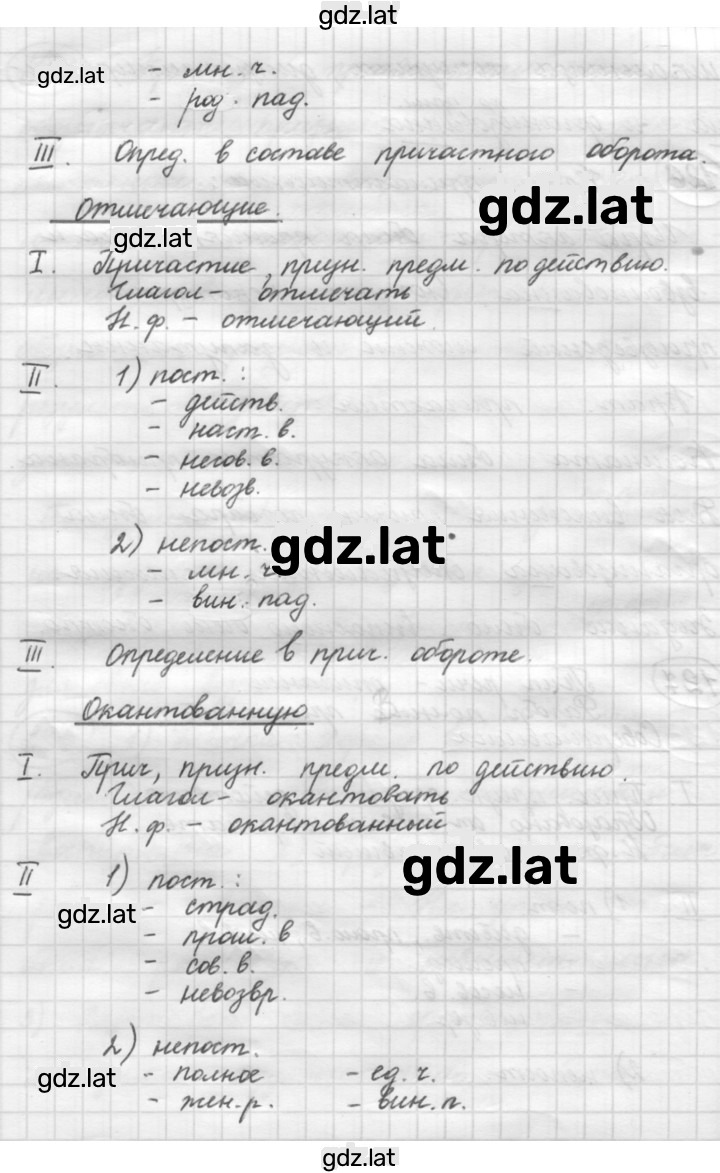 gdz.lat
gdz.lat
- мн. ч.
- род. пад.
III. Опред. в составе причастного оборота.
gdz.lat
Отмечающие.
gdz.lat
I. Причастие, призн. предм. по действию.
Глагол - отмечать
Н. ф. - отмечающий.
II. 1) пост. :
- действ.
- наст. в.
- несов. в.
- невозв.
2) непост.
gdz.lat
- мн. ч.
- вин. пад.
III. Определение в прич. обороте.
Окантованную
I. Прич, призн. предм. по действию.
Глагол - окантовать
Н. ф. - окантованный
gdz.lat
II 1) пост. :
- страд.
gdz.lat
- прош. в
- сов. в.
- невозвр.
2) непост.
- полное - ед. ч.
gdz.lat
- жен. р. - вин. п.
gdz.lat